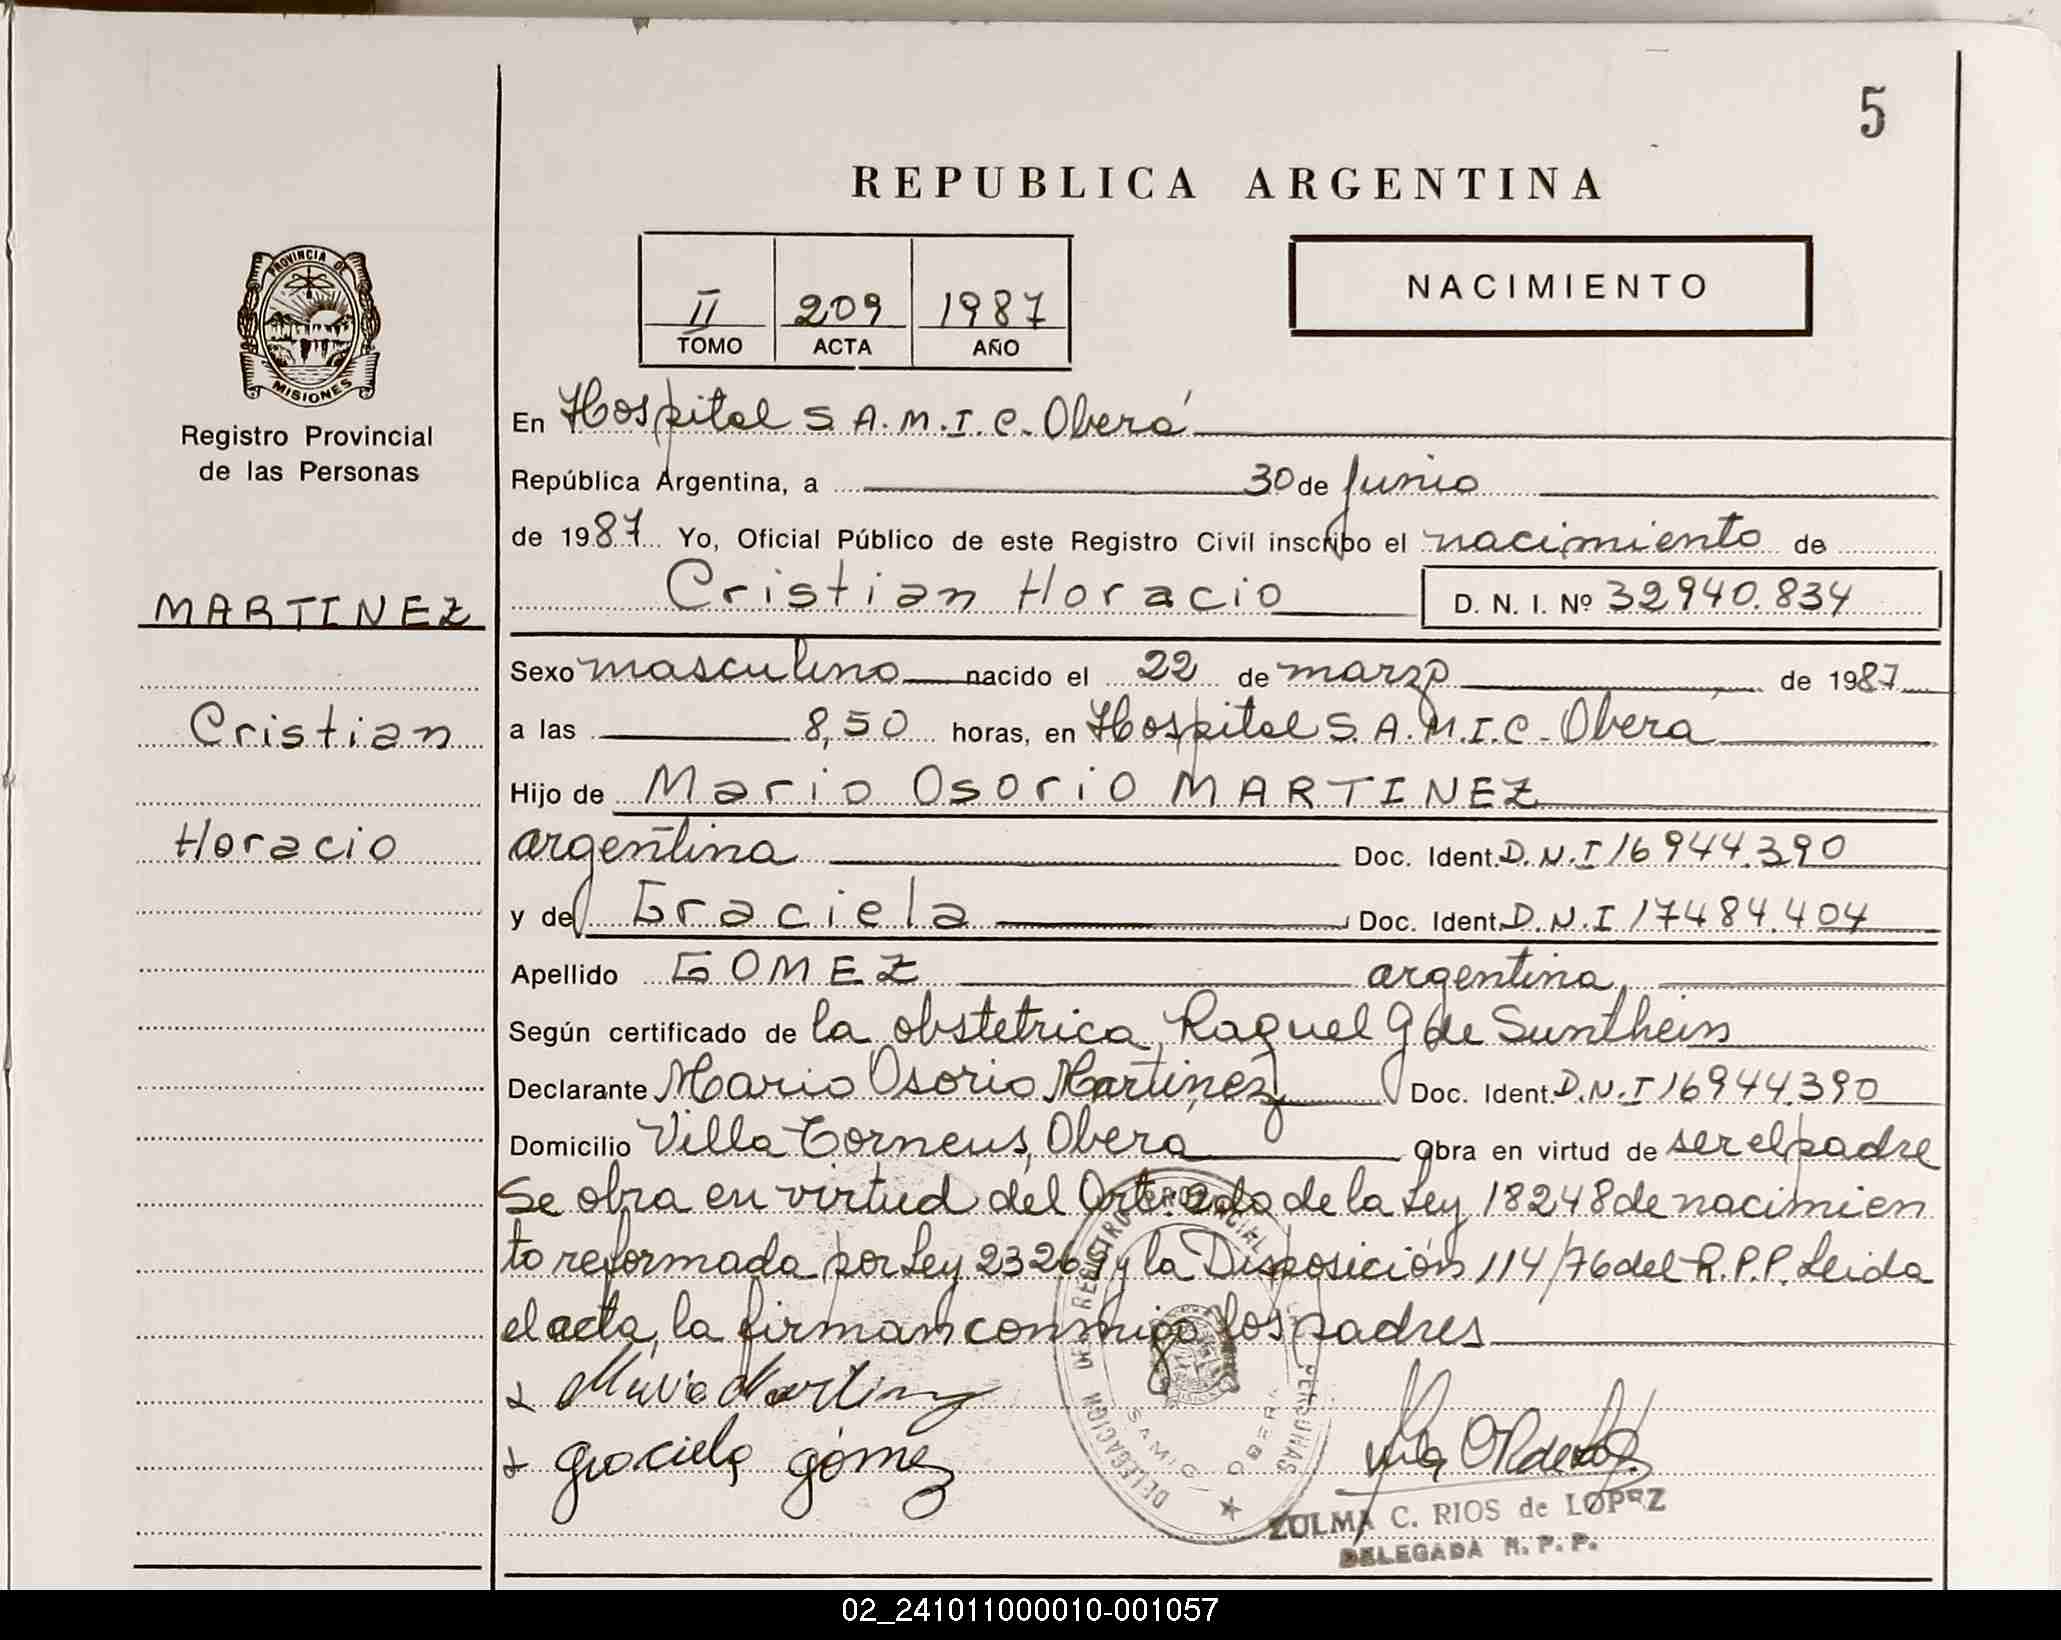 5
REPUBLICA ARGENTINA
PROVINCIA DE
MISIONES
II 209 1987
TOMO ACTA AÑO
NACIMIENTO
Registro Provincial
de las Personas
MARTINEZ
Cristian
Horacio
En Hospital S.A.M.I.C. Oberá
República Argentina, a 30 de Junio
de 1987 Yo, Oficial Público de este Registro Civil inscribo el nacimiento de
Cristian Horacio D. N. I. Nº 32940.834
Sexo masculino nacido el 22 de marzo de 1987
a las 8,50 horas, en Hospital S.A.M.I.C. Oberá
Hijo de Mario Osorio MARTINEZ
argentina Doc. Ident. D.N.I 16944.390
y de Graciela Doc. Ident. D.N.I 17484.404
Apellido GOMEZ argentina
Según certificado de la obstetrica Raquel G de Sunthein
Declarante Mario Osorio Martinez Doc. Ident. D.N.I 16944.390
Domicilio Villa Torneus, Oberá Obra en virtud de ser el padre
Se obra en virtud del Art. 2do de la Ley 18248 de nacimien
to reformada por Ley 23264 y la Disposición 114/76 del R.P.P. Leida
el acta, la firman conmigo los padres
Mario Martinez
graciela gómez
DELEGACION DEL REGISTRO PROVINCIAL PERSONAS
SAMIC OBERA
ZULMA C. RIOS de LOPEZ
DELEGADA R. P. P.
02_241011000010-001057